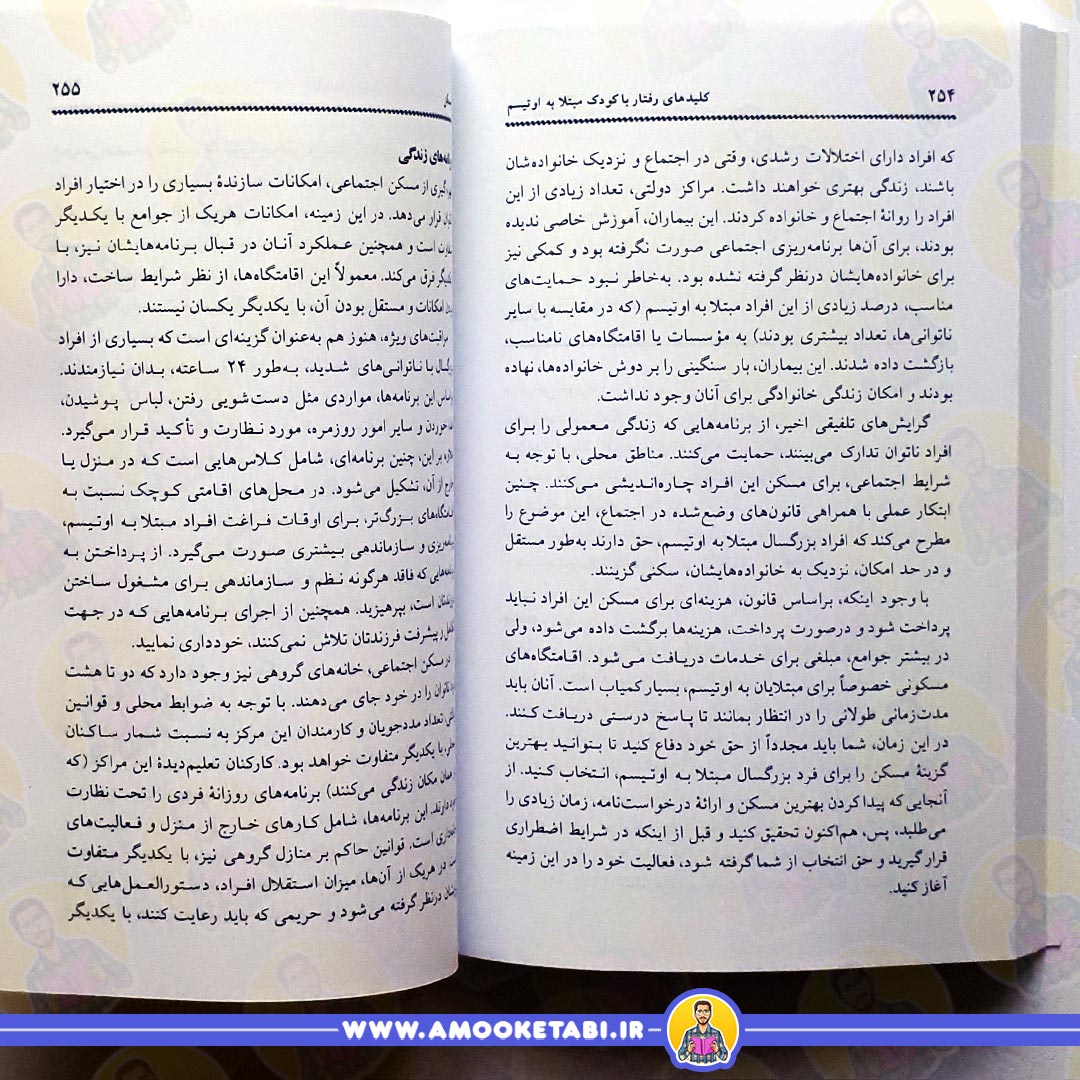 ۲۵۴
کلیدهای رفتار با کودک مبتلا به اوتیسم
که افراد دارای اختلالات رشدی، وقتی در اجتماع و نزدیک خانواده‌شان
باشند، زندگی بهتری خواهند داشت. مراکز دولتی، تعداد زیادی از این
افراد را روانهٔ اجتماع و خانواده کردند. این بیماران، آموزش خاصی ندیده
بودند، برای آن‌ها برنامه‌ریزی اجتماعی صورت نگرفته بود و کمکی نیز
برای خانواده‌هایشان درنظر گرفته نشده بود. به‌خاطر نبود حمایت‌های
مناسب، درصد زیادی از این افراد مبتلا به اوتیسم (که در مقایسه با سایر
ناتوانی‌ها، تعداد بیشتری بودند) به مؤسسات یا اقامتگاه‌های نامناسب،
بازگشت داده شدند. این بیماران، بار سنگینی را بر دوش خانواده‌ها، نهاده
بودند و امکان زندگی خانوادگی برای آنان وجود نداشت.
گرایش‌های تلفیقی اخیر، از برنامه‌هایی که زندگی معمولی را برای
افراد ناتوان تدارک می‌بینند، حمایت می‌کنند. مناطق محلی، با توجه به
شرایط اجتماعی، برای مسکن این افراد چاره‌اندیشی می‌کنند. چنین
ابتکار عملی با همراهی قانون‌های وضع‌شده در اجتماع، این موضوع را
مطرح می‌کند که افراد بزرگسال مبتلا به اوتیسم، حق دارند به‌طور مستقل
و در حد امکان، نزدیک به خانواده‌هایشان، سکنی گزینند.
با وجود اینکه، براساس قانون، هزینه‌ای برای مسکن این افراد نباید
پرداخت شود و درصورت پرداخت، هزینه‌ها برگشت داده می‌شود، ولی
در بیشتر جوامع، مبلغی برای خدمات دریافت می‌شود. اقامتگاه‌های
مسکونی خصوصاً برای مبتلایان به اوتیسم، بسیار کمیاب است. آنان باید
مدت‌زمانی طولانی را در انتظار بمانند تا پاسخ درستی دریافت کنند.
در این زمان، شما باید مجدداً از حق خود دفاع کنید تا بتوانید بهترین
گزینهٔ مسکن را برای فرد بزرگسال مبتلا به اوتیسم، انتخاب کنید. از
آنجایی که پیدا کردن بهترین مسکن و ارائهٔ درخواست‌نامه، زمان زیادی را
می‌طلبد، پس، هم‌اکنون تحقیق کنید و قبل از اینکه در شرایط اضطراری
قرار گیرید و حق انتخاب از شما گرفته شود، فعالیت خود را در این زمینه
آغاز کنید.
۲۵۵
زندگی
از مسکن اجتماعی، امکانات سازندهٔ بسیاری را در اختیار افراد
قرار می‌دهد. در این زمینه، امکانات هریک از جوامع با یکدیگر
است و همچنین عملکرد آنان در قبال برنامه‌هایشان نیز، با
فرق می‌کند. معمولاً این اقامتگاه‌ها، از نظر شرایط ساخت، دارا
امکانات و مستقل بودن آن، با یکدیگر یکسان نیستند.
ویژه، هنوز هم به‌عنوان گزینه‌ای است که بسیاری از افراد
با ناتوانی‌های شدید، به‌طور ۲۴ ساعته، بدان نیازمندند.
این برنامه‌ها، مواردی مثل دست‌شویی رفتن، لباس پوشیدن،
خوردن و سایر امور روزمره، مورد نظارت و تأکید قرار می‌گیرد.
بر این، چنین برنامه‌ای، شامل کلاس‌هایی است که در منزل یا
از آن، تشکیل می‌شود. در محل‌های اقامتی کوچک نسبت به
بزرگ‌تر، برای اوقات فراغت افراد مبتلا به اوتیسم،
و سازماندهی بیشتری صورت می‌گیرد. از پرداختن به
که فاقد هرگونه نظم و سازماندهی برای مشغول ساختن
است، بپرهیزید. همچنین از اجرای برنامه‌هایی که در جهت
پیشرفت فرزندتان تلاش نمی‌کنند، خودداری نمایید.
مسکن اجتماعی، خانه‌های گروهی نیز وجود دارد که دو تا هشت
ناتوان را در خود جای می‌دهند. با توجه به ضوابط محلی و قوانین
تعداد مددجویان و کارمندان این مرکز به نسبت شمار ساکنان
با یکدیگر متفاوت خواهد بود. کارکنان تعلیم‌دیدهٔ این مراکز (که
همان مکان زندگی می‌کنند) برنامه‌های روزانهٔ فردی را تحت نظارت
دارند. این برنامه‌ها، شامل کارهای خارج از منزل و فعالیت‌های
است. قوانین حاکم بر منازل گروهی نیز، با یکدیگر متفاوت
در هریک از آن‌ها، میزان استقلال افراد، دستورالعمل‌هایی که
درنظر گرفته می‌شود و حریمی که باید رعایت کنند، با یکدیگر
WWW.AMOOKETABI.IR